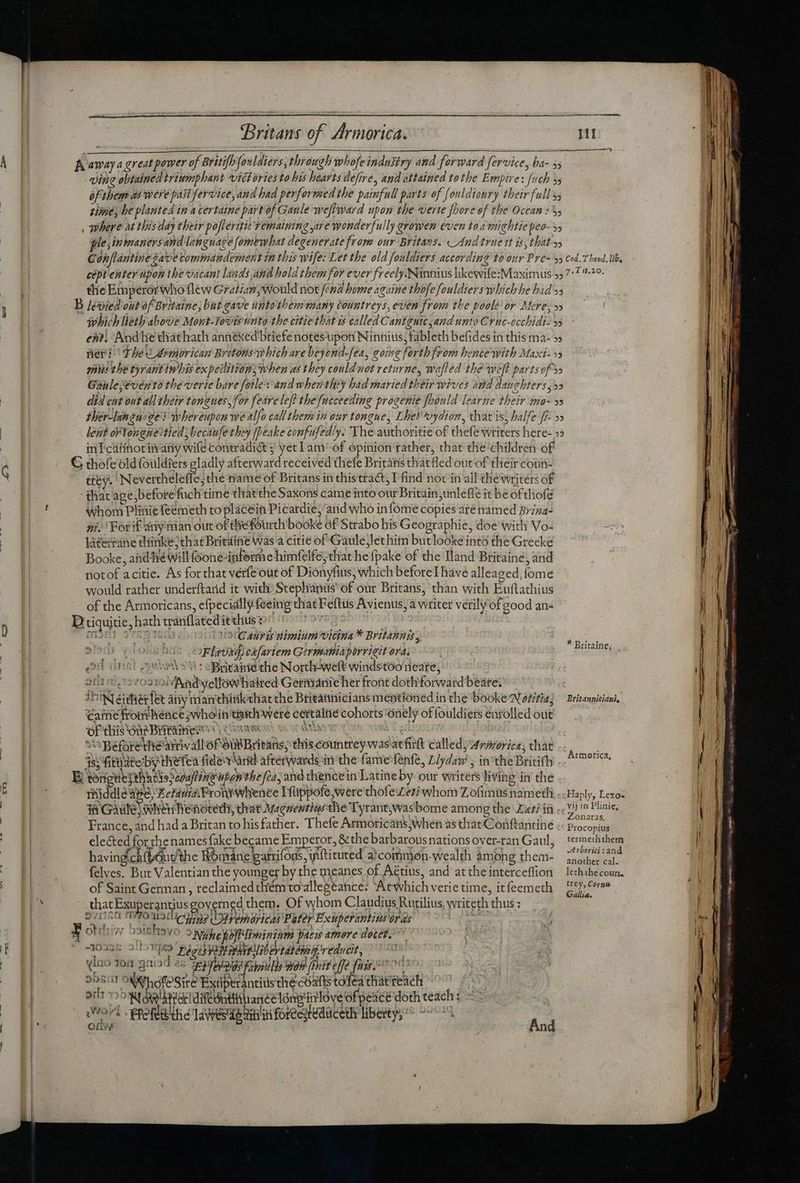 Britans of Armorica. 111
A away a great power of British souldiers, through whose industry and forward service, ha- ,,
ving obtained triumphant victories to his hearts desire, and attained to the Empire: such ,,
of them as were past service, and had performed the painfull parts of souldioury their full ,,
time, he planted in a certaine part of Gaule westward upon the verie shore of the Ocean: ,,
where at this day their posteritie remaining, are wonderfully growen even to a mightie peo- ,,
ple, in maners and language somewhat degenerate from our Britans. And true it is, that ,,
Constantine gave commandement in this wise: Let the old souldiers according to our Pre- ,, Cod. Theod. lib.
cept enter upon the vacant lands, and hold them for ever freely. Ninnius likewise: Maximus ,, 7. Tit. 20.
the Emperor who slew Gratian, would not send home againe those souldiers which he had ,,
B levied out of Britaine, but gave unto them many countreys, even from the poole or Mere, ,,
which lieth above Mont-Iovis unto the citie that is called Cantguic, and unto Cruc-occhidi- ,,
ent. And he that hath annexed briefe notes upon Ninnius, fableth besides in this ma- ,,
ner: The Armorican Britons which are beyond-sea, going forth from hence with Maxi- ,,
mus the tyrant in his expedition, when as they could not returne, wasted the west parts of ,,
Gaule, even to the verie bare soile: and when they had maried their wives and daughters, ,,
did cut out all their tongues, for feare lest the succeeding progenie should learne their mo- ,,
ther-language: whereupon we also call them in our tongue, Lhet vydion, that is, halfe si- ,,
lent or Tongue-tied, because they speake confusedly. The authoritie of these writers here- ,,
in I cannot in any wise contradict; yet I am of opinion rather, that the children of
C those old souldiers gladly afterward received these Britans that fled out of their coun-
trey. Neverthelesse, the name of Britans in this tract, I find not in all the writers of
that age, before such time that the Saxons came into our Britain, unlesse it be of those
whom Plinie seemeth to place in Picardie, and who in some copies are named Brina-
ni. For if any man out of the fourth booke of Strabo his Geographie, doe with Vo-
laterrane thinke, that Britaine was a citie of Gaule, let him but looke into the Greeke
Booke, and he will soone informe himselfe, that he spake of the Iland Britaine, and
not of a citie. As for that verse out of Dionysius, which before I have alleaged, some
would rather understand it with Stephanus of our Britans, than with Eustathius
of the Armoricans, especially seeing that Festus Avienus, a writer verily of good an-
D tiquitie, hath translated it thus:
Cauris nimium vicina * Britannis,
* Britaine,
Flavaque cæsariem Germania porrigit ora.
Britaine the North-West winds too neare,
And yellow haired Germanie her front doth forward beare.
Neither let any man think that the Britannicians mentioned in the booke Notitia, Britanniciani,
came from hence, who in truth were certaine cohorts onely of souldiers enrolled out
of this our Britaine.
Before the arrivall of our Britans, this countrey was at first called, Armorica, that Armorica,
is, situate by the sea side: and afterwards in the same sense, Llydaw, in the British
E tongue, that is, coasting upon the sea, and thence in Latine by our writers living in the
middle age, Letavia. From whence I suppose, were those Leti whom Zosimus nameth Haply, Lexo-
in Gaule, when he noteth, that Magnentius the Tyrant, was borne among the Lati in vij in Plinie,
France, and had a Britan to his father. These Armoricans, when as that Constantine Zonaras, Procopius
elected for the names sake became Emperor, & the barbarous nations over-ran Gaul, termeth them
having cast out the Romane garrisons, instituted a common-wealth among them- Arborici: and another cal-
selves. But Valentian the younger by the meanes of Aëtius, and at the intercession leth the coun-
of Saint German, reclaimed them to allegeance. At which verie time, it seemeth trey, Cornu
that Exuperantius governed them. Of whom Claudius Rutilius, writeth thus: Galliæ.
Cujus Aremoricas Pater Exuperantius oras
F Nunc postliminium pacis amore docet.
Leges restituit, libertatemque reducit,
Et servos famulis non sinit esse suis.
Whose Sire Exuperantius the coasts to sea that reach
Now after discontinuance long in love of peace doth teach:
Resets the lawes againe in force, reduceth liberty,
And